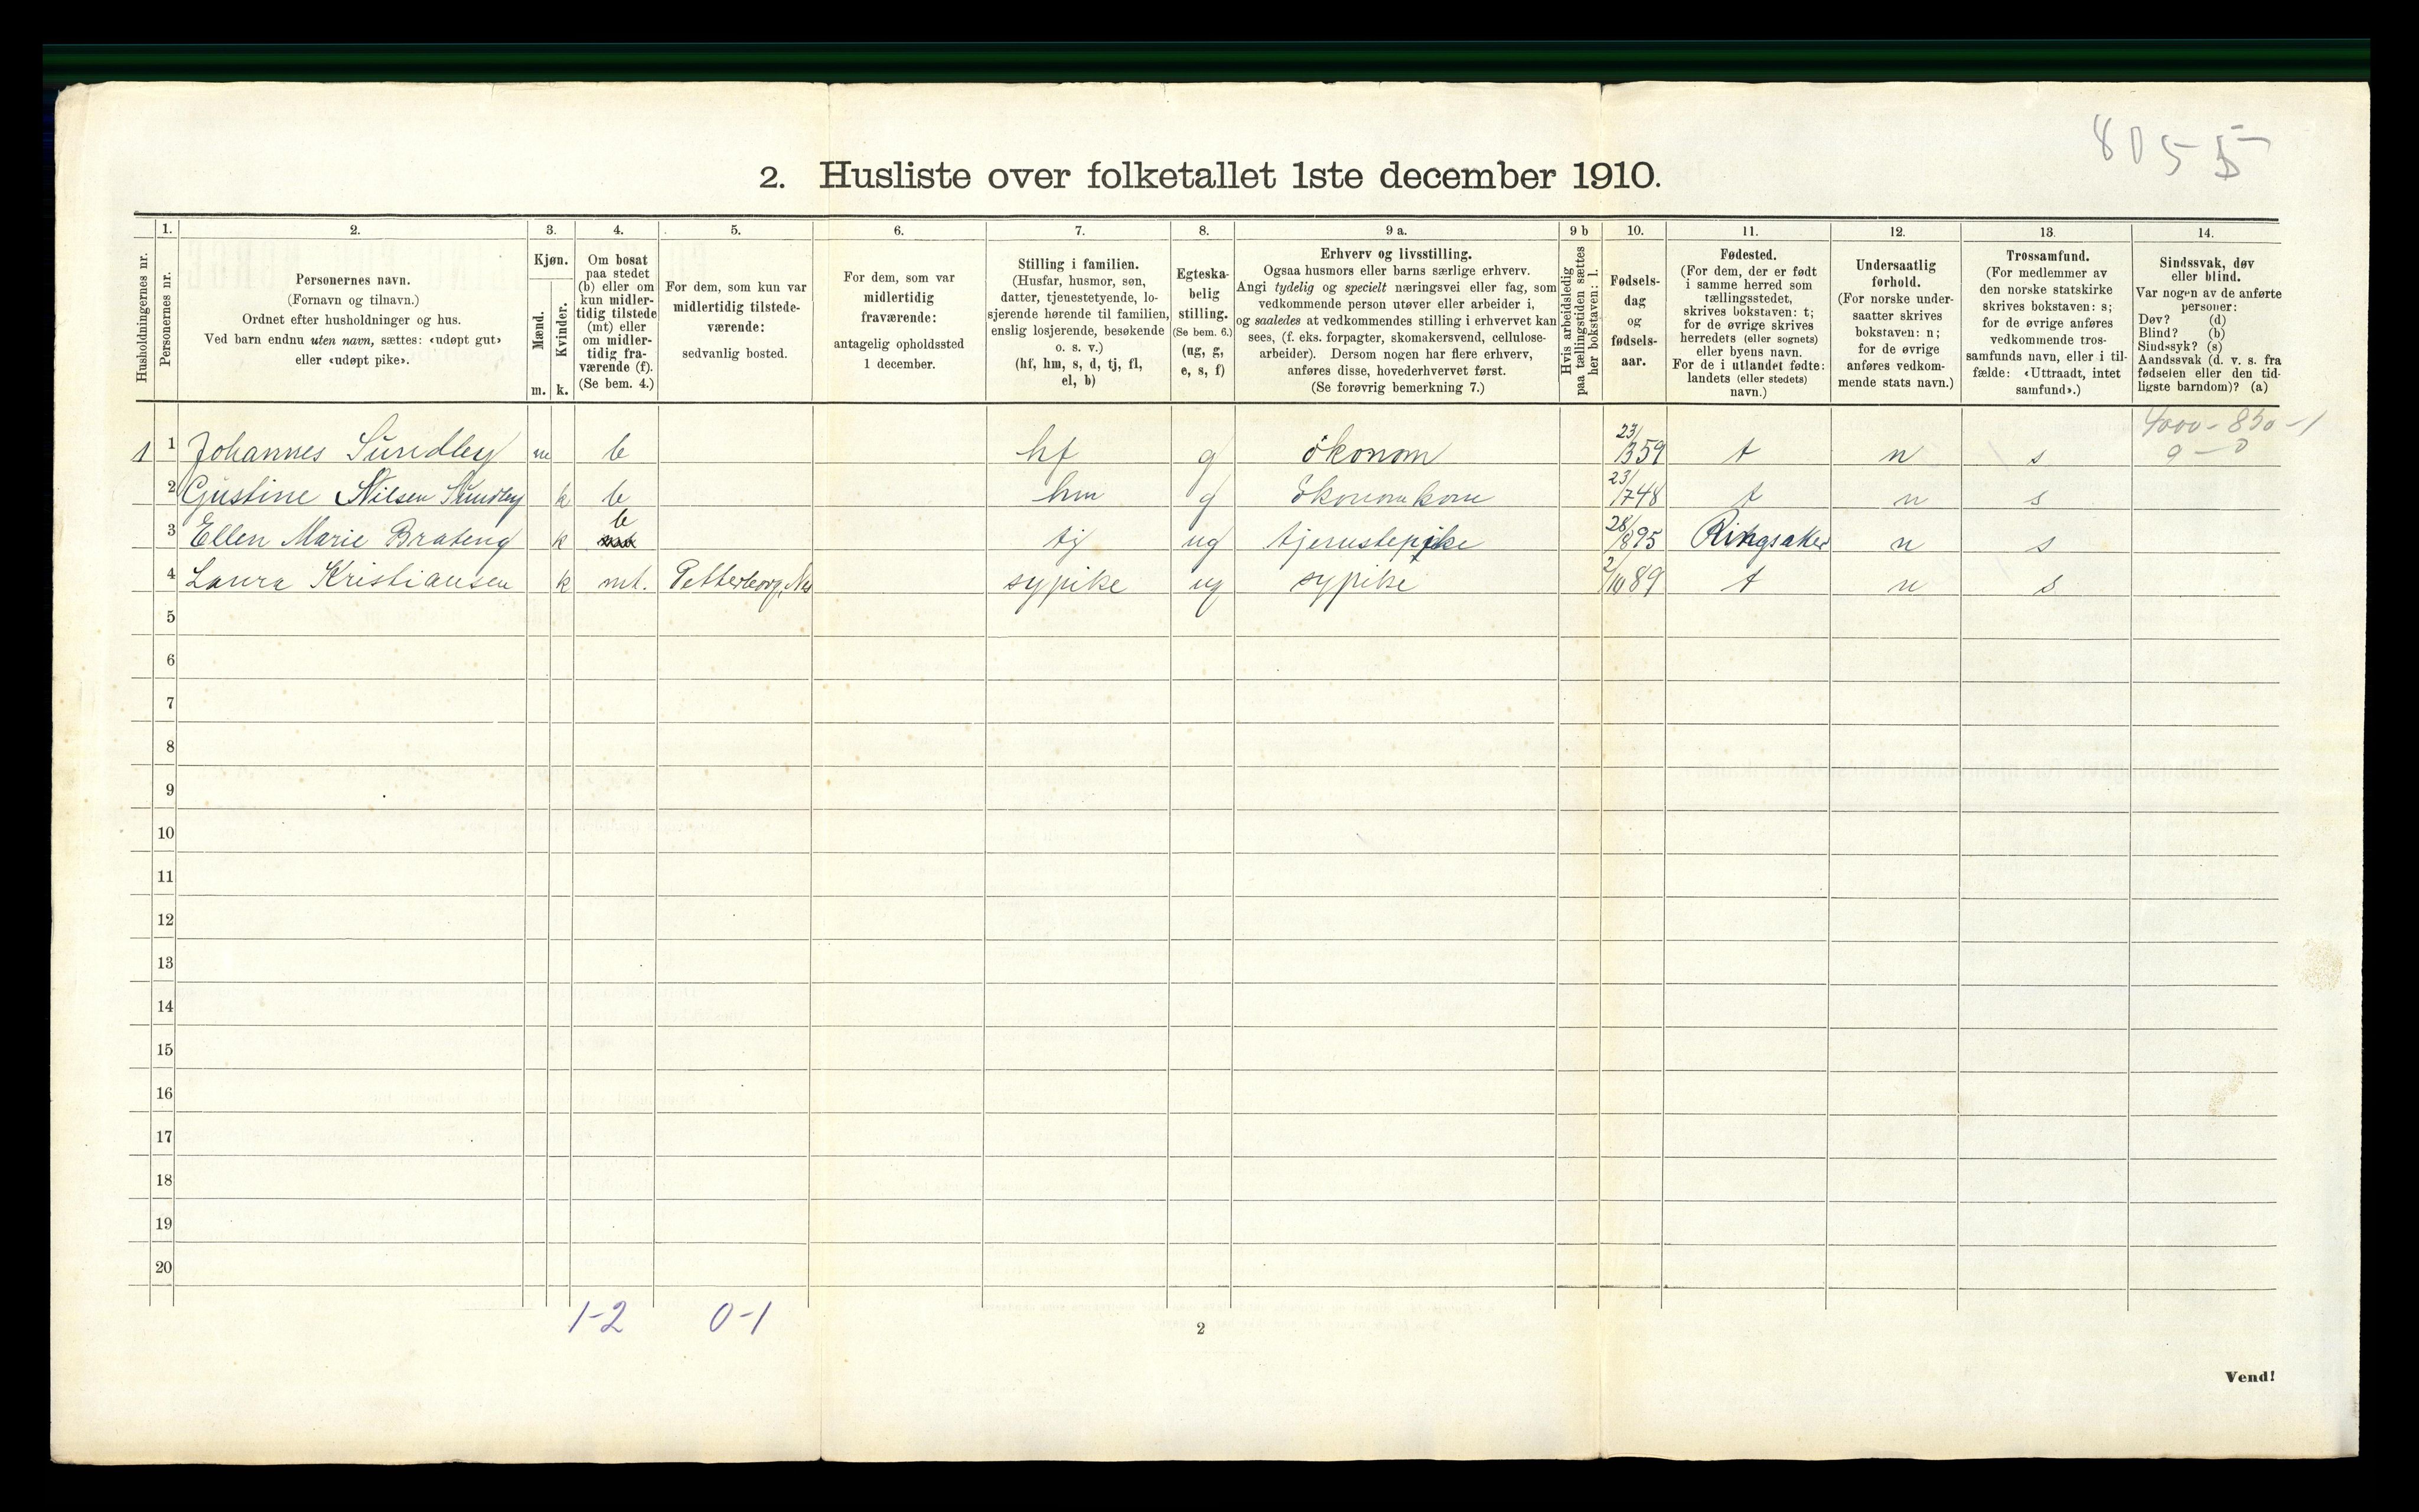 8055
2. Husliste over folketallet 1ste december 1910.
Husholdningernes nr.
1.
Personernes nr.
2.
Personernes navn.
(Fornavn og tilnavn.)
Ordnet efter husholdninger og hus.
Ved barn endnu uten navn, sættes: «udøpt gut»
eller «udøpt pike».
3.
Kjøn.
Mænd.
m.
Kvinder.
k.
4.
Om bosat
paa stedet
(b) eller om
kun midler-
tidig tilstede
(mt) eller
om midler-
tidig fra-
værende (f).
(Se bem. 4.)
5.
For dem, som kun var
midlertidig tilstede-
værende:
sedvanlig bosted.
6.
For dem, som var
midlertidig
fraværende:
antagelig opholdssted
1 december.
7.
Stilling i familien.
(Husfar, husmor, søn,
datter, tjenestetyende, lo-
sjerende hørende til familien,
enslig losjerende, besøkende
o. s. v.)
(hf, hm, s, d, tj, fl,
el, b)
8.
Egteska-
belig
stilling.
(Se bem. 6.)
(ug, g,
e, s, f)
9 a.
Erhverv og livsstilling.
Ogsaa husmors eller barns særlige erhverv.
Angi tydelig og specielt næringsvei eller fag, som
vedkommende person utøver eller arbeider i,
og saaledes at vedkommendes stilling i erhvervet kan
sees, (f. eks. forpagter, skomakersvend, cellulose-
arbeider). Dersom nogen har flere erhverv,
anføres disse, hovederhvervet først.
(Se forøvrig bemerkning 7.)
9 b
Hvis arbeidsledig
paa tællingstiden sættes
her bokstaven: l.
10.
Fødsels-
dag
og
fødsels-
aar.
11.
Fødested.
(For dem, der er født
i samme herred som
tællingsstedet,
skrives bokstaven: t;
for de øvrige skrives
herredets (eller sognets)
eller byens navn.
For de i utlandet fødte:
landets (eller stedets)
navn.)
12.
Undersaatlig
forhold.
(For norske under-
saatter skrives
bokstaven: n;
for de øvrige
anføres vedkom-
mende stats navn.)
13.
Trossamfund.
(For medlemmer av
den norske statskirke
skrives bokstaven: s;
for de øvrige anføres
vedkommende tros-
samfunds navn, eller i til-
fælde: «Uttraadt, intet
samfund».)
14.
Sindssvak, døv
eller blind.
Var nogen av de anførte
personer:
Døv? (d)
Blind? (b)
Sindssyk? (s)
Aandssvak (d. v. s. fra
fødselen eller den tid-
ligste barndom)? (a)
4000-850-1
0-0
1 1 Johannes Sundby m b hf g økonom 23/3 59 t n s
2 Gustine Nilsen Sundby k b hm g økonomkone 23/7 48 t n s
3 Ellen Marie Brateng k b tj ug tjenestepike 28/8 95 Ringsaker n s
4 Laura Kristiansen k mt. Petterborg, Nes sypike ug sypike 2/10 89 t n s
5
6
7
8
9
10
11
12
13
14
15
16
17
18
19
20
1-2 0-1
2
Vend!